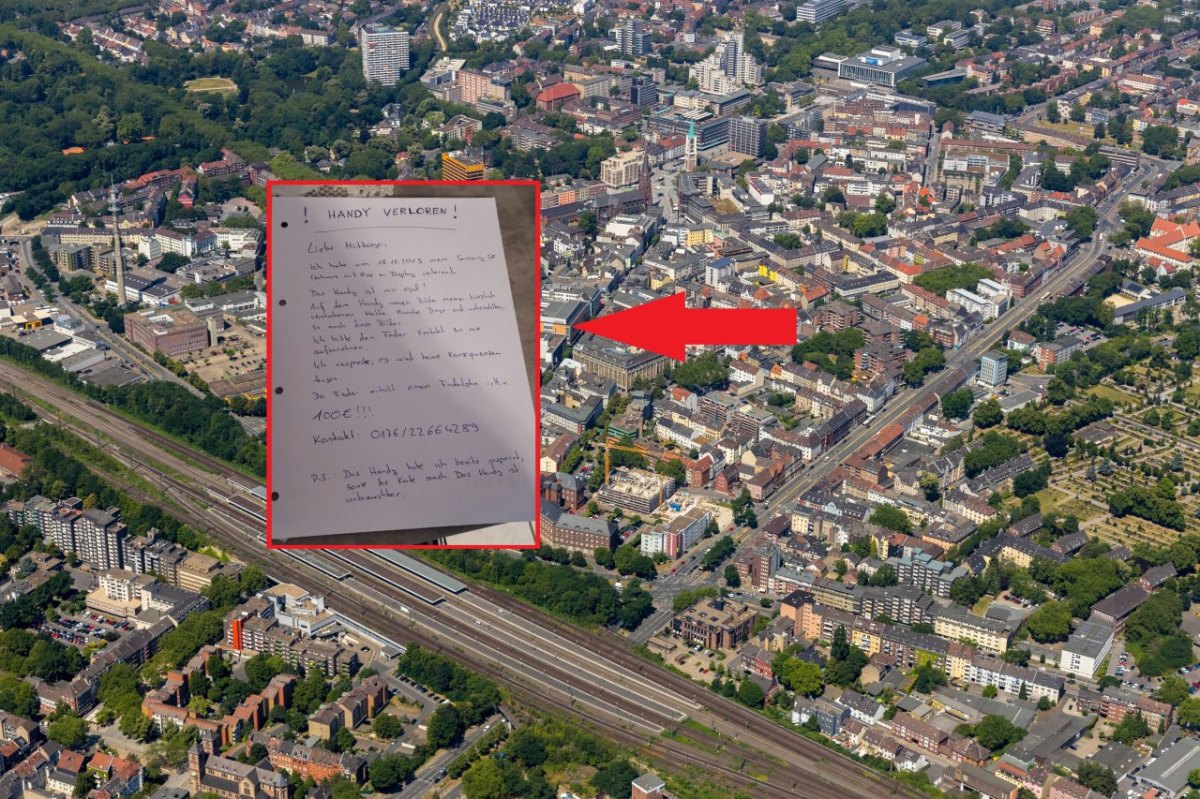 ! HANDY VERLOREN !
Liebe Mitbürger,
ich habe am 18.10.2023 mein Samsung S8
(schwarz mit Riss im Display verloren).
Das Handy ist mir egal!
Auf dem Handy waren Bilder meiner kürzlich
verstorbenen Mutter. Manche Dinge sind unbezahlbar,
so auch diese Bilder.
Ich bitte den Finder Kontakt zu mir
aufzunehmen.
Ich verspreche, es wird keine Konsequenzen
tragen.
Der Finder erhält einen Finderlohn i.H.v
100€!!!
Kontakt: 0176/22664289
P.S.: Das Handy habe ich bereits gesperrt,
sowie die Karte auch. Das Handy ist
unbrauchbar.